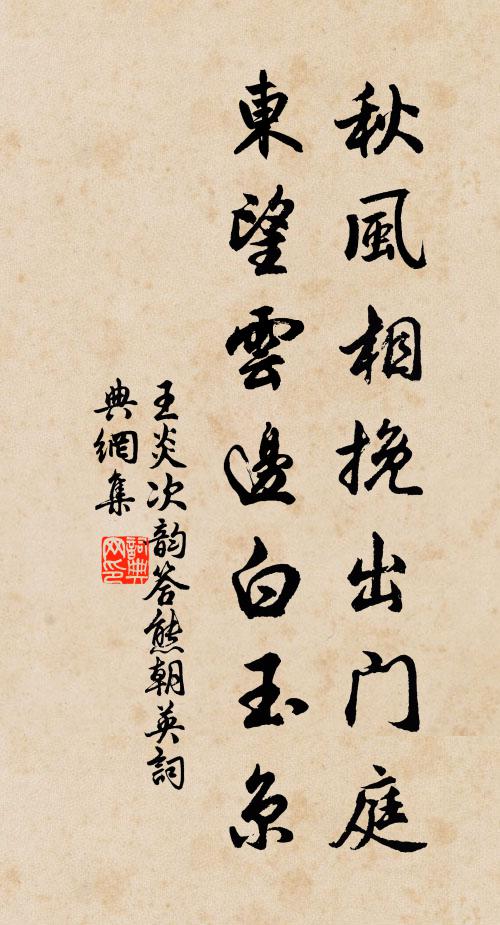 秋風相挽出門庭
東望雲邊白玉京
王炎次韵答熊朝英詞
典網集
詞典網印